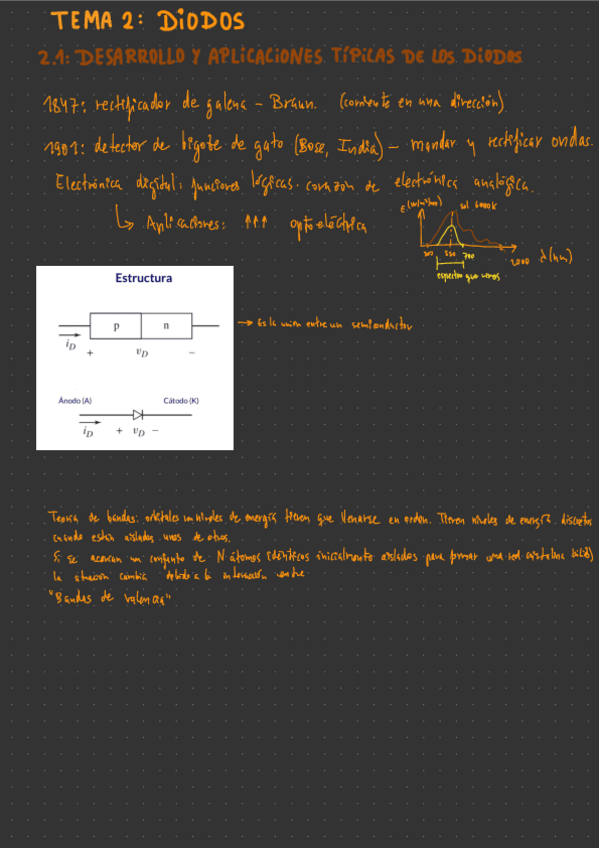 TEMA 2: DIODOS
2.1: DESARROLLO Y APLICACIONES TÍPICAS DE LOS DIODOS
1847: rectificador de galena - Braun. (corriente en una dirección)
1901: detector de bigote de gato (Bose, India) - mandar y rectificar ondas.
Electrónica digital: funciones lógicas. corazón de electrónica analógica.
↳ Aplicaciones: ↑↑↑ optoeléctrica
sol 6000K
550 700 2000 λ(nm)
espectro que vemos
Estructura
p n
→ Es la union entre un semiconductor
iD + vD −
Ánodo (A) Cátodo (K)
iD + vD −
Teoría de bandas: orbitales niveles de energía tienen que llenarse en orden. Tienen niveles de energía discretos
cuando estan aislados unos de otros.
Si se acercan un conjunto de N átomos idénticos inicialmente aislados para formar una red cristalina
la situacion cambia debido a la interacción entre
"Bandas de valencia"